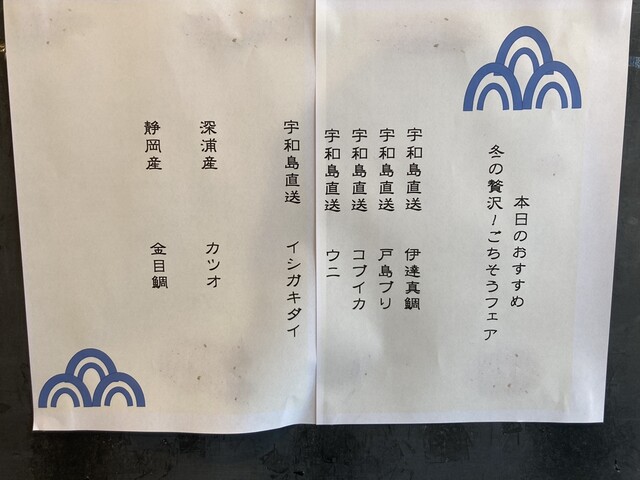 本日のおすすめ
冬の贅沢!ごちそうフェア
宇和島直送 伊達真鯛
宇和島直送 戸島ブリ
宇和島直送 コブイカ
宇和島直送 ウニ
宇和島直送 イシガキダイ
深浦産 カツオ
静岡産 金目鯛